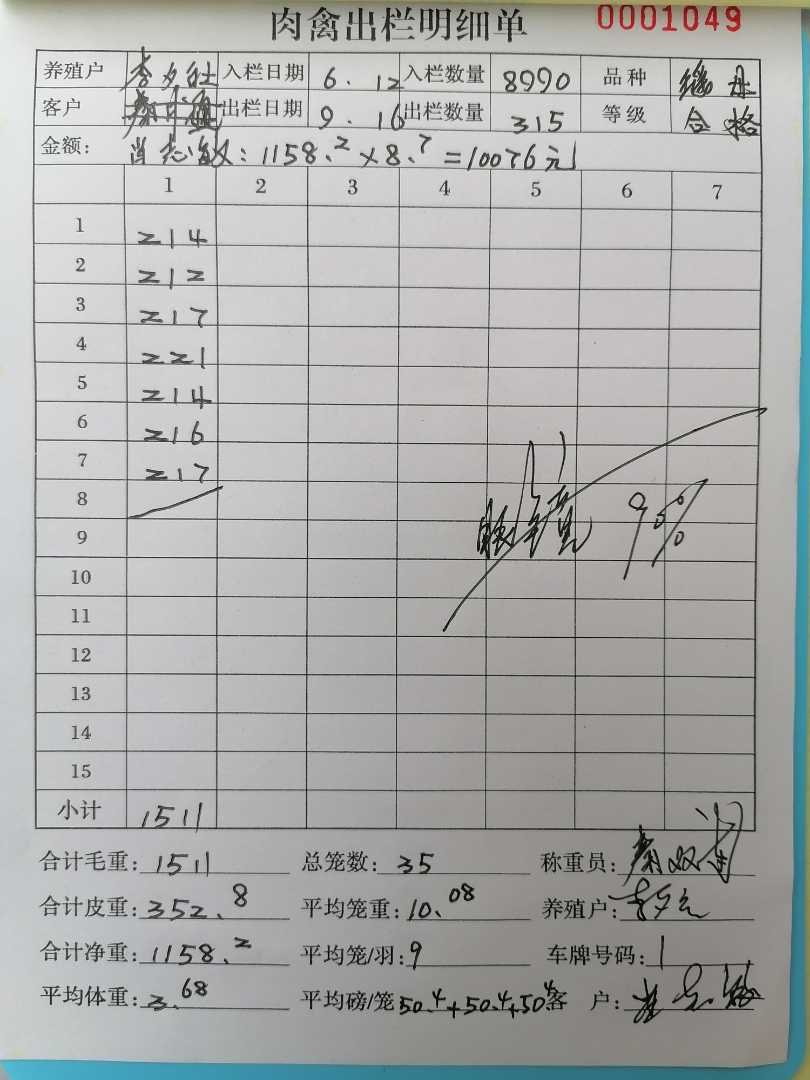 肉禽出栏明细单 0001049
养殖户 李 入栏日期 6.12 入栏数量 8990 品种
客户 出栏日期 9.16 出栏数量 315 等级 合格
金额: 1158.2×8.7=10076元
1 2 3 4 5 6 7
1 214
2 212
3 217
4 221
5 214
6 216
7 217
8
9
10
11
12
13
14
15
小计 1511
90%
合计毛重: 1511 总笼数: 35 称重员:
合计皮重: 352.8 平均笼重: 10.08 养殖户:
合计净重: 1158.2 平均笼/羽: 9 车牌号码: 1
平均体重: 3.68 平均磅/笼 50.4+50.4+50.4 客 户: